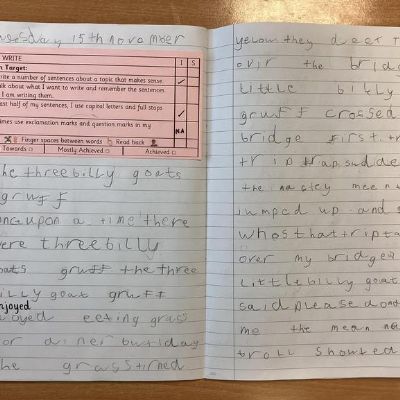 nesday 15th november
WRITE
n Target:
I S
rite a number of sentences about a topic that makes sense.
alk about what I want to write and remember the sentences
I am writing them.
st half of my sentences, I use capital letters and full stops
imes use exclamation marks and question marks in my
NA
Finger spaces between words Read back
Towards Mostly Achieved Achieved
the three billy goats
gruff
once upon a time there
were three billy
oats gruff the three
illy goat gruff
enjoyed
oyed eeting grass
or diner but iday
the grass tirned
yelow they
ovir the brid
little billy
gruff crossed
bridge first. tr
trip trap sudde
the nastey meen
jumped up and s
whos that tripta
over my bridge
little billy goat
said please dont
me the mean
troll shouted